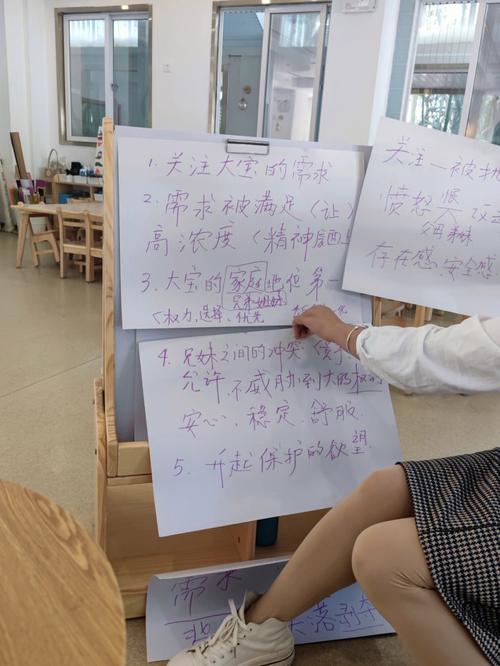 1. 关注大宝的需求
2. 需求被满足（让）
高浓度（精神层面
3. 大宝的家庭地位第一
兄弟姐妹
（权力、选择、优先
4. 兄妹之间的冲突
允许、不威胁到大的
安心、稳定、舒服.
5. 开起保护的欲望
关注—被
愤怒 恨
存在感.安全感
需求
落剥夺